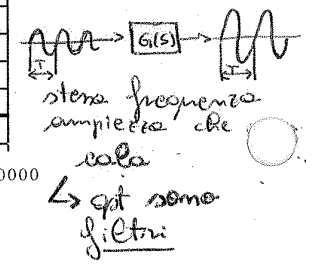 G(s)
T T
stessa frequenza
ampiezza che
cala
0000
↳ qst sono
filtri